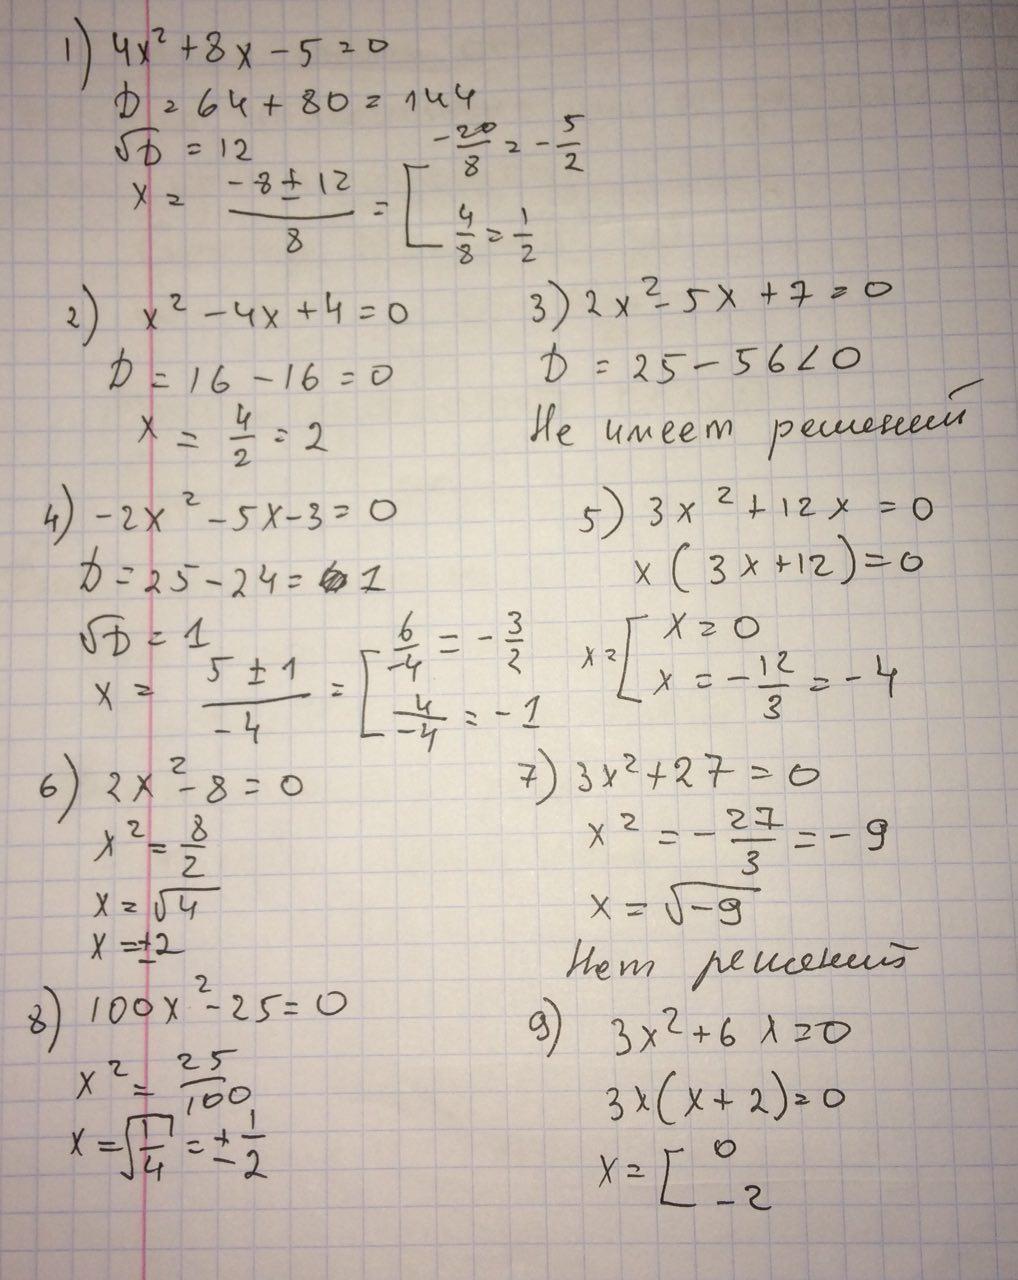 1) 4x² + 8x - 5 = 0
D = 64 + 80 = 144
√D = 12
x = (-8 ± 12)/8 = [ -20/8 = -5/2
4/8 = 1/2
2) x² - 4x + 4 = 0
D = 16 - 16 = 0
x = 4/2 = 2
3) 2x² - 5x + 7 = 0
D = 25 - 56 < 0
Не имеет решений
4) -2x² - 5x - 3 = 0
D = 25 - 24 = 1
√D = 1
x = (5 ± 1)/-4 = [ 6/-4 = -3/2
4/-4 = -1
5) 3x² + 12x = 0
x(3x + 12) = 0
x = [ x = 0
x = -12/3 = -4
6) 2x² - 8 = 0
x² = 8/2
x = √4
x = ±2
7) 3x² + 27 = 0
x² = -27/3 = -9
x = √-9
Нет решений
8) 100x² - 25 = 0
x² = 25/100
x = √(1/4) = ±1/2
9) 3x² + 6x = 0
3x(x + 2) = 0
x = [ 0
-2